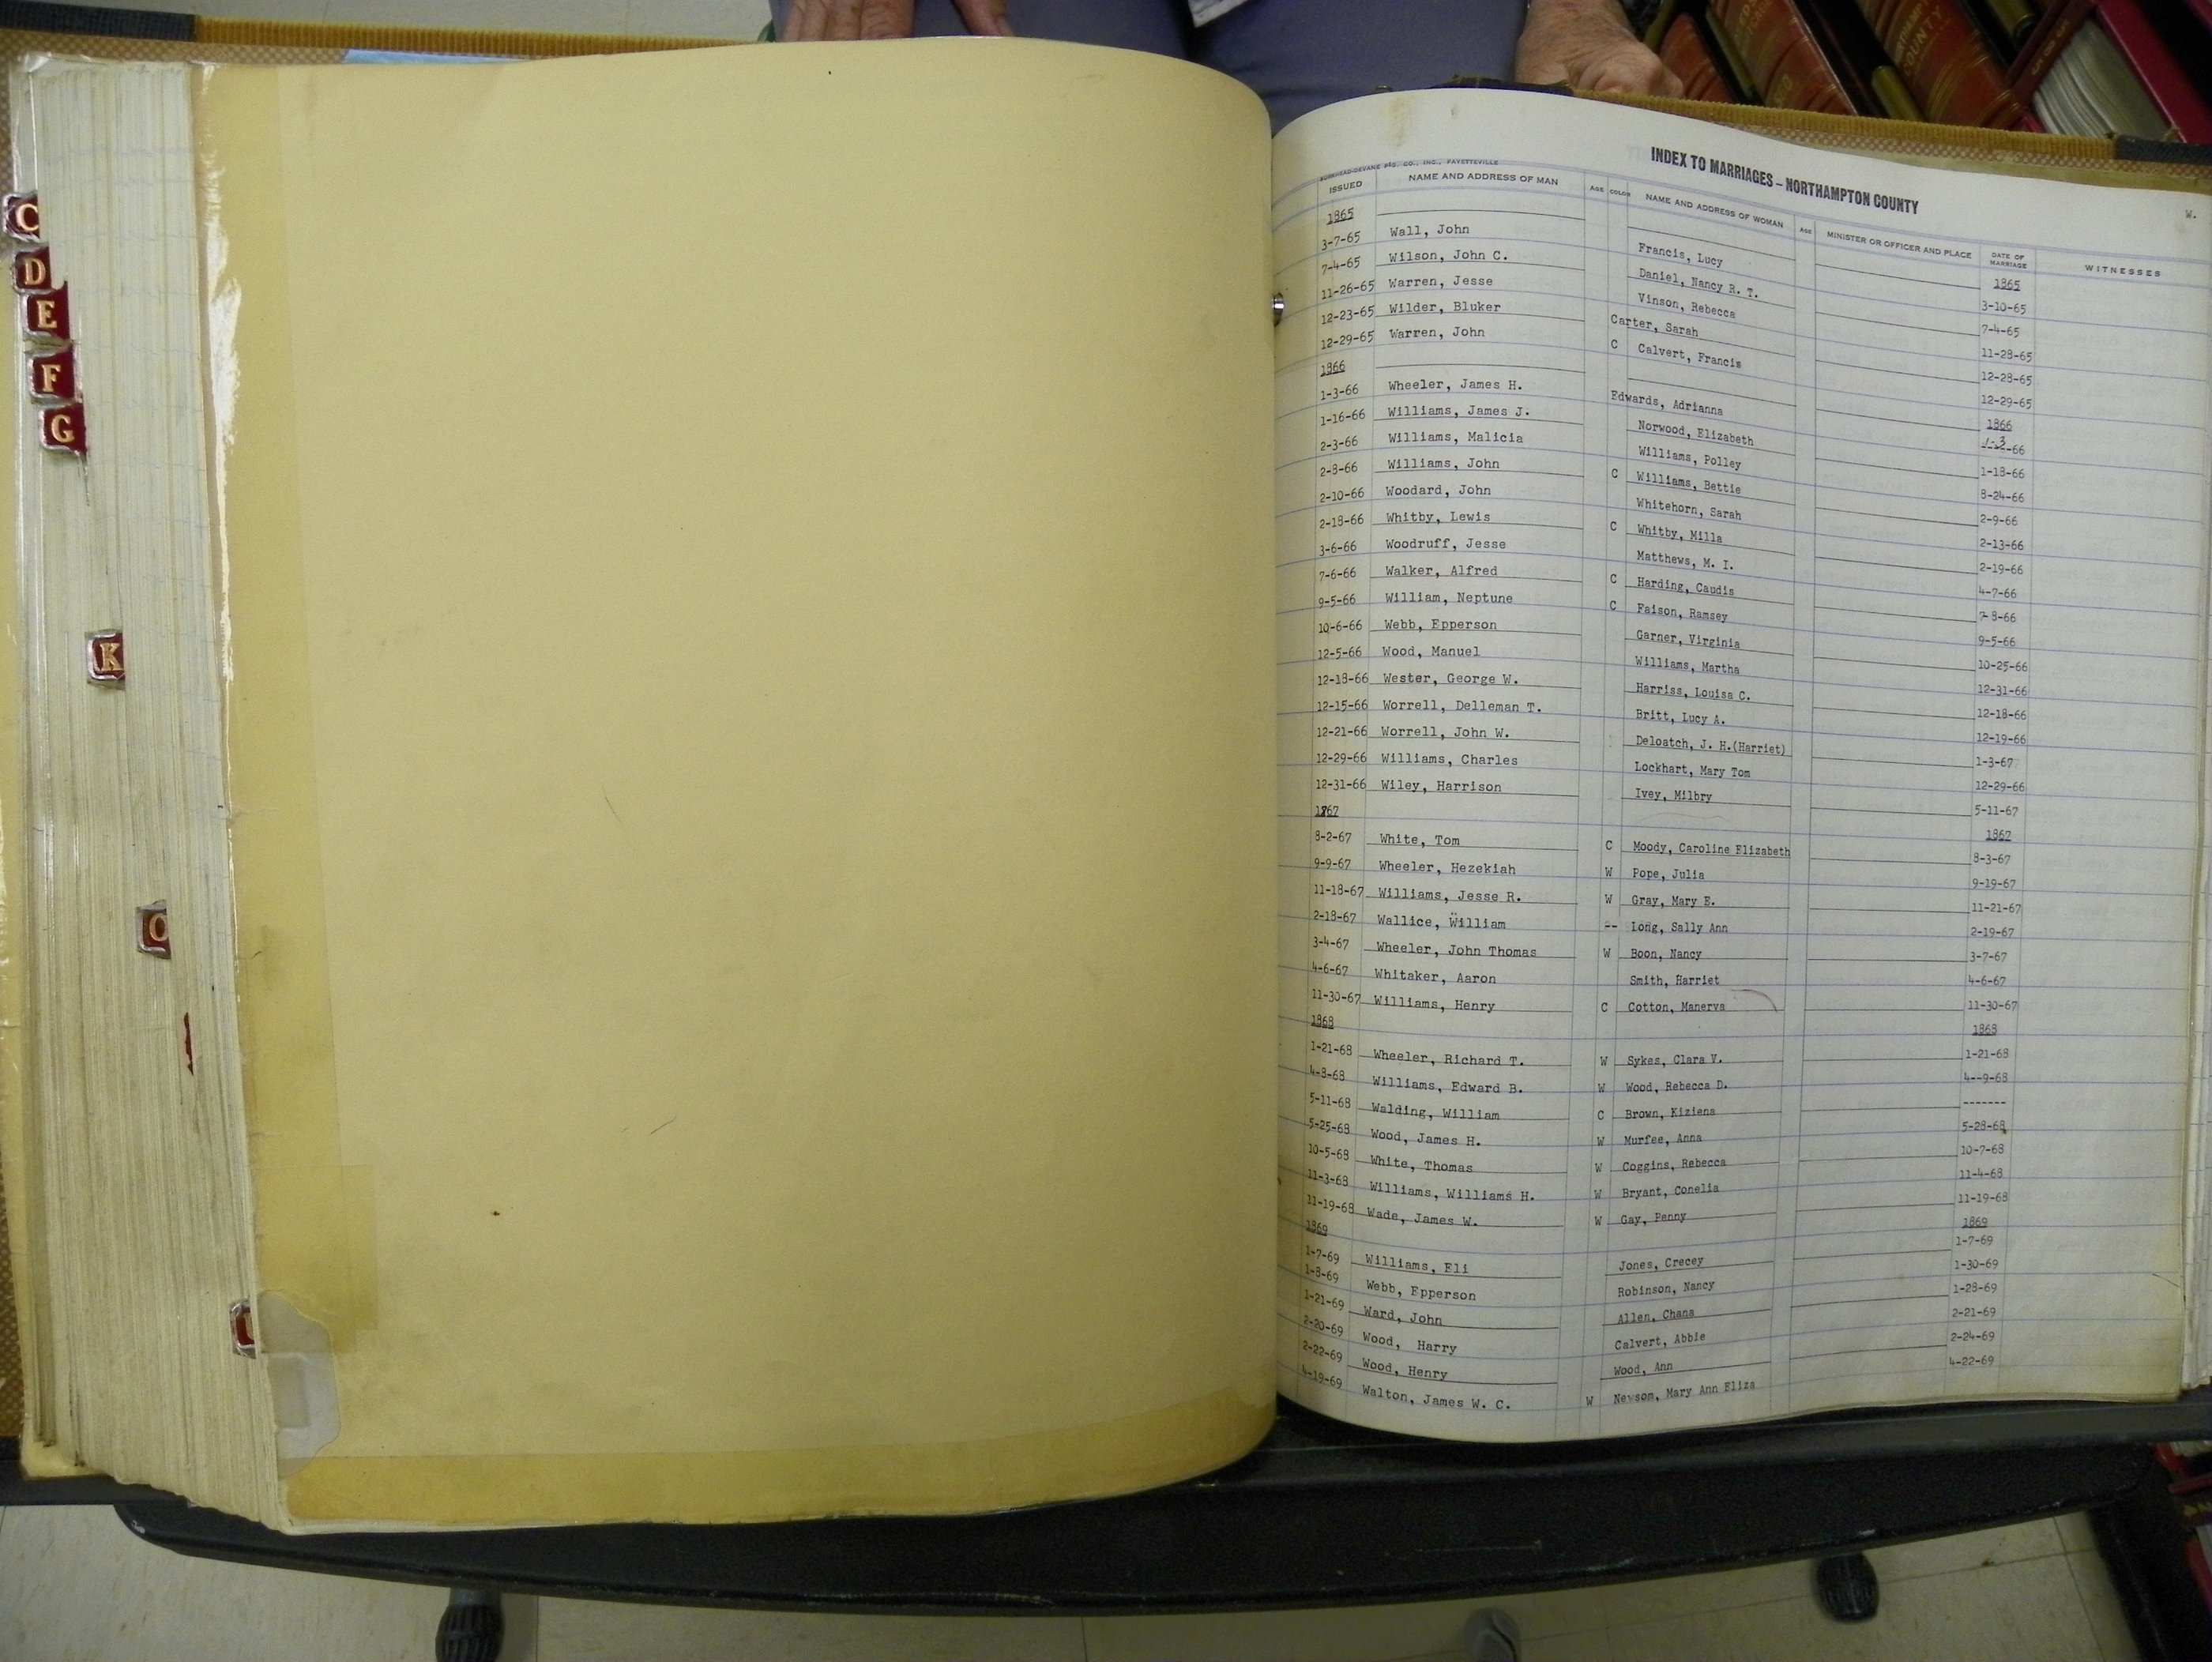 C
D
E
F
G
K
O
COUNTY
BURKHEAD-DEVANE PTG. CO., INC., FAYETTEVILLE
INDEX TO MARRIAGES – NORTHAMPTON COUNTY
W.
ISSUED NAME AND ADDRESS OF MAN AGE COLOR NAME AND ADDRESS OF WOMAN AGE MINISTER OR OFFICER AND PLACE DATE OF MARRIAGE WITNESSES
1865 1865
3-7-65 Wall, John Francis, Lucy 3-10-65
7-4-65 Wilson, John C. Daniel, Nancy R. T. 7-4-65
11-26-65 Warren, Jesse Vinson, Rebecca 11-28-65
12-23-65 Wilder, Bluker Carter, Sarah 12-28-65
12-29-65 Warren, John C Calvert, Francis 12-29-65
1866 1866
1-3-66 Wheeler, James H. Edwards, Adrianna
1-16-66 Williams, James J. Norwood, Elizabeth 1-18-66
2-3-66 Williams, Malicia Williams, Polley 8-24-66
2-8-66 Williams, John C Williams, Bettie 2-9-66
2-10-66 Woodard, John Whitehorn, Sarah 2-13-66
2-18-66 Whitby, Lewis C Whitby, Milla 2-19-66
3-6-66 Woodruff, Jesse Matthews, M. I. 4-7-66
7-6-66 Walker, Alfred C Harding, Caudis 7-8-66
9-5-66 William, Neptune C Faison, Ramsey 9-5-66
10-6-66 Webb, Epperson Garner, Virginia 10-25-66
12-5-66 Wood, Manuel Williams, Martha 12-31-66
12-18-66 Wester, George W. Harriss, Louisa C. 12-18-66
12-15-66 Worrell, Delleman T. Britt, Lucy A. 12-19-66
12-21-66 Worrell, John W. Deloatch, J. H.(Harriet) 1-3-67
12-29-66 Williams, Charles Lockhart, Mary Tom 12-29-66
12-31-66 Wiley, Harrison Ivey, Milbry 5-11-67
1867 1867
8-2-67 White, Tom C Moody, Caroline Elizabeth 8-3-67
9-9-67 Wheeler, Hezekiah W Pope, Julia 9-19-67
11-18-67 Williams, Jesse R. W Gray, Mary E. 11-21-67
2-18-67 Wallice, William -- Long, Sally Ann 2-19-67
3-4-67 Wheeler, John Thomas W Boon, Nancy 3-7-67
4-6-67 Whitaker, Aaron Smith, Harriet 4-6-67
11-30-67 Williams, Henry C Cotton, Manerva 11-30-67
1868 1868
1-21-68 Wheeler, Richard T. W Sykes, Clara V. 1-21-68
4-8-68 Williams, Edward B. W Wood, Rebecca D. 4--9-68
5-11-68 Walding, William C Brown, Kiziens -------
5-25-68 Wood, James H. W Murfee, Anna 5-28-68
10-5-68 White, Thomas W Coggins, Rebecca 10-7-68
11-3-68 Williams, Williams H. W Bryant, Conelia 11-4-68
11-19-68 Wade, James W. W Gay, Penny 11-19-68
1869 1869
1-7-69 Williams, Eli Jones, Crecey 1-7-69
1-8-69 Webb, Epperson Robinson, Nancy 1-30-69
1-21-69 Ward, John Allen, Chana 1-28-69
2-20-69 Wood, Harry Calvert, Abbie 2-21-69
2-22-69 Wood, Henry Wood, Ann 2-24-69
4-19-69 Walton, James W. C. W Newsom, Mary Ann Eliza 4-22-69